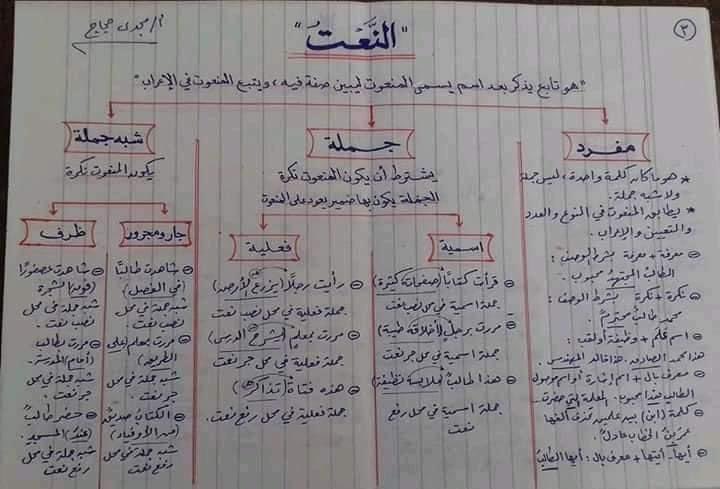 ٣
"النَّعْتُ"
أ/ مجدى حجاج
"هو تابع يذكر بعد اسم يسمى المنعوت ليبين صفة فيه، ويتبع المنعوت في الإعراب"
مفرد
* هو ما كان كلمة واحدة، ليس جملة
ولا شبه جملة.
* يطابق المنعوت في النوع والعدد
والتعيين والإعراب.
⊖ معرفة + معرفة بشرط الوصف:
الطالبُ المجتهدُ محبوب.
⊖ نكرة + نكرة بشرط الوصف:
محمد طالبٌ محترمٌ.
⊖ اسم علم + وظيفة أو لقب:
هذا محمد الصادق. هذا خالد المهندس.
⊖ معرف بال + اسم إشارة أو اسم موصول
الطالب هذا محبوب. المعلمة التي حضرت
⊖ كلمة (ابن) بين علمين
عمر بن الخطاب عادلٌ.
⊖ أيها - أيتها + معرف بال: أيها الطالبُ
جملة
يشترط أن يكون المنعوت نكرة
الجملة يكون بها ضمير يعود على المنعوت
اسمية
⊖ قرأت كتابًا (صفحاته كثيرة)
جملة اسمية في محل نصب نعت
⊖ مررت برجلٍ (أخلاقه طيبة)
جملة اسمية في محل جر نعت
⊖ هذا طالبٌ (ملابسه نظيفة)
جملة اسمية في محل رفع
نعت
فعلية
⊖ رأيت رجلًا (يزرع الأرض)
جملة فعلية في محل نصب نعت
⊖ مررت بمعلمٍ (يشرح الدرس)
جملة فعلية في محل جر نعت
⊖ هذه فتاة (تذاكر)
جملة فعلية في محل رفع نعت.
شبه جملة
يكون المنعوت نكرة
جار ومجرور
⊖ شاهدت طالبًا
(في الفصل)
شبه جملة في محل
نصب نعت.
⊖ مررت بمعلمٍ (على
الطريق)
شبه جملة في محل
جر نعت.
⊖ الكتابُ صديقٌ
(من الأوفياء)
شبه جملة في محل
رفع نعت
ظرف
⊖ شاهدت عصفورًا
(فوق الشجرة)
شبه جملة في محل
نصب نعت.
⊖ مررت بطالبٍ
(أمام المدرسة)
شبه جملة في محل
جر نعت.
⊖ حضر طالبٌ
(عند) المسجد.
شبه جملة في محل
رفع نعت